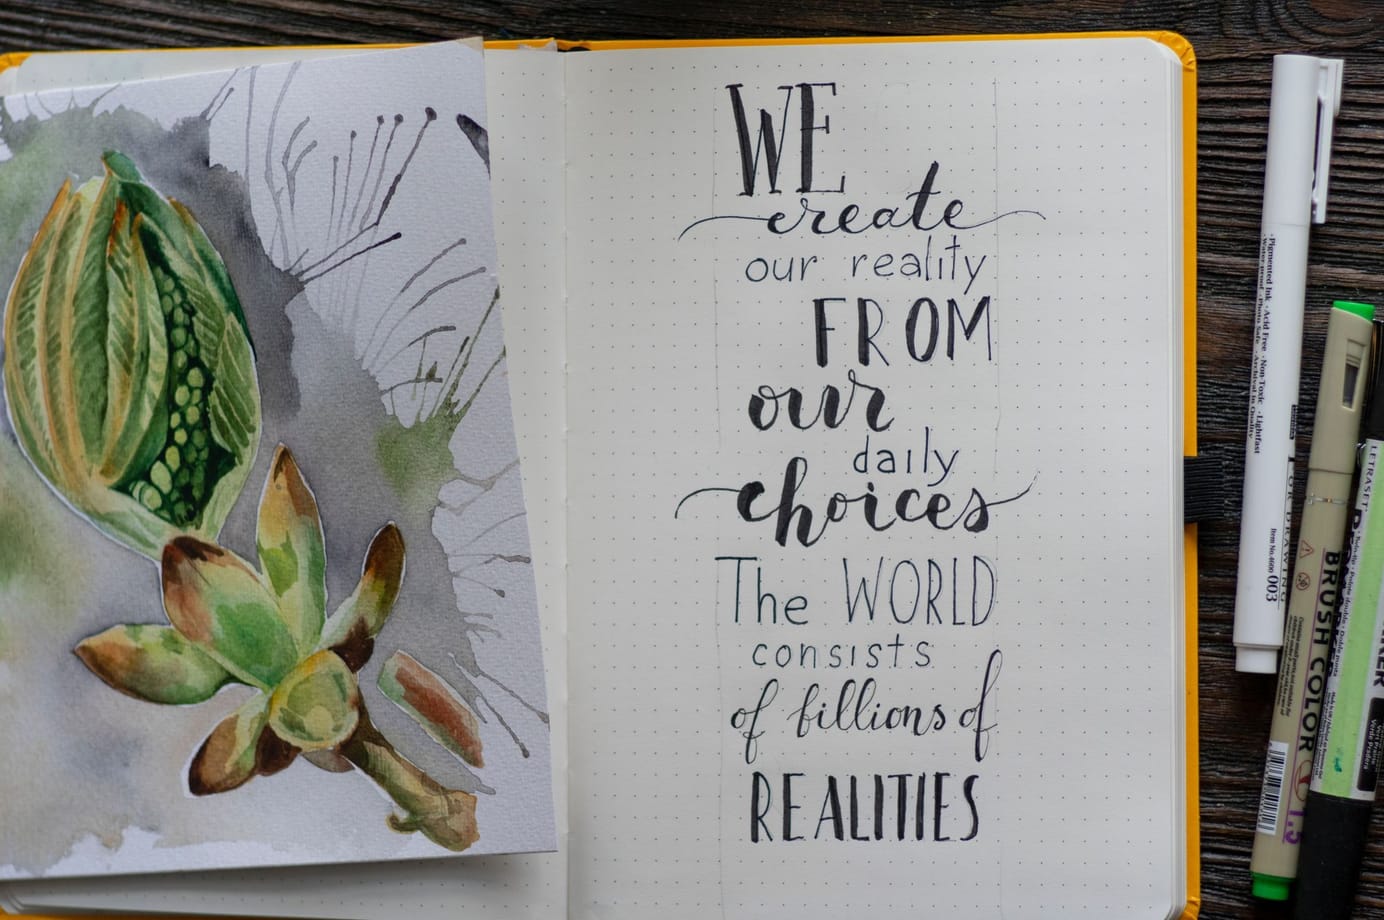 WE
create
our reality
FROM
our
daily
choices
The WORLD
consists
of billions of
REALITIES
· Pigmented Ink · Acid Free · Non-Toxic · Lightfast
Water proof · Photo Safe · Archival in Quality
FOR DRAWING
Item No. 4600 003
BRUSH COLOR
1.5
LETRASET